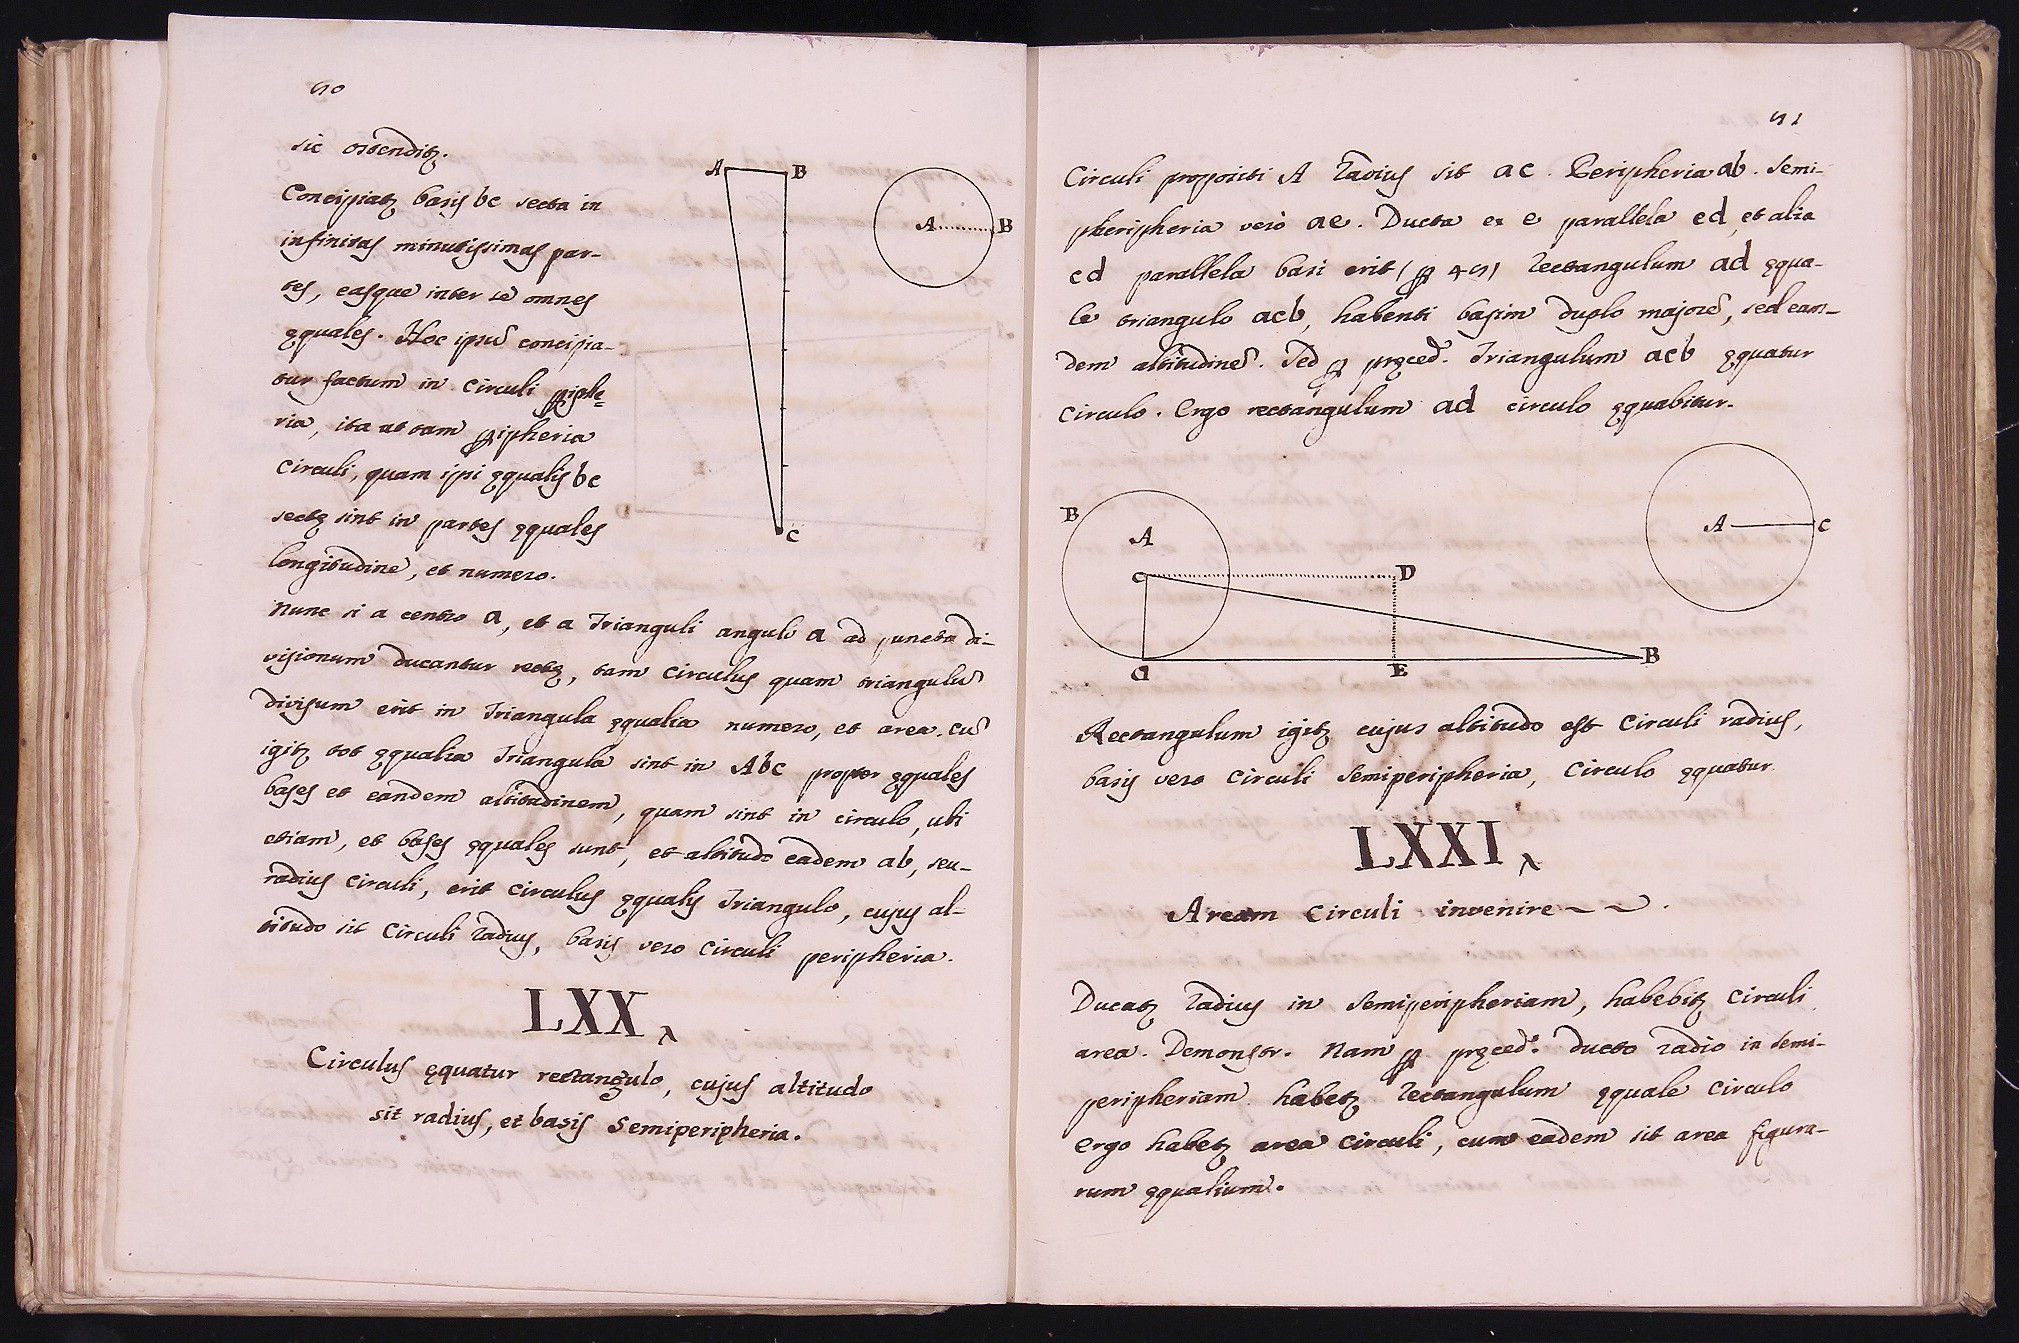 50
sic ostenditꝫ.
Concipiatꝫ basis bc secta in
infinitas minutissimas par-
tes, easque inter se omnes
ęquales. Hoc ipsũ concipia-
tur factum in circuli ꝑiphe-
ria, ita ut tam ꝑipheria
circuli, quam ipsi ęqualis bc
sectę sint in partes ęquales
longitudine, et numero.
A B
C
A B
Nunc si a centro a, et a Trianguli angulo a ad puncta di-
visionum ducantur rectę, tam circulus quam triangulũ
divisum erit in Triangula ęqualia numero, et area. Cũ
igitꝫ tot ęqualia Triangula sint in Abc propter ęquales
bases et eandem altitudinem, quam sint in circulo, ubi
etiam, et bases ęquales sunt, et altitudo eadem ab, seu-
radius circuli, erit circulus ęqualis Triangulo, cujus al-
titudo sit Circuli radius, basis vero circuli peripheria.
LXX
Circulus ęquatur rectangulo, cujus altitudo
sit radius, et basis Semiperipheria.
51
Circuli propositi A radius sit ac. Peripheria ab. semi-
pheripheria verò ae. Ducta ex e parallela ed, et alia
cd parallela basi erit (ꝑ 45) rectangulum ad ęqua-
le triangulo acb, habenti basim duplo majorẽ, sed ean-
dem altitudinẽ. Sed ꝑ pręced. Triangulum acb ęquatur
circulo. Ergo rectangulum ad circulo ęquabitur.
B A
C D
A E B
A C
Rectangulum igitꝫ cujus altitudo est circuli radius,
basis vero circuli semiperipheria, circulo ęquatur.
LXXI
Aream Circuli invenire
Ducatꝫ radius in semiperipheriam, habebitꝫ circuli
area. Demonstr. Nam ꝑ pręced. ducto radio in semi-
peripheriam habetꝫ rectangulum ęquale circulo
ergo habetꝫ area circuli, cum eadem sit area figura-
rum ęqualium.